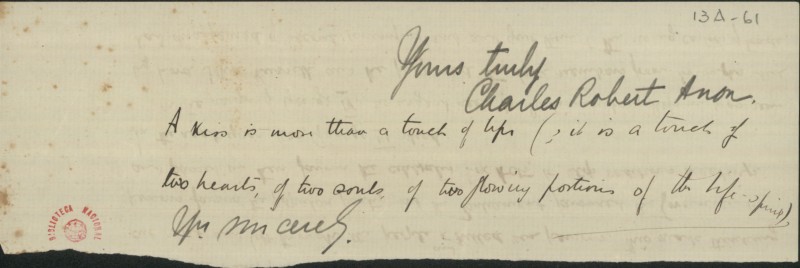 13A-61
Yours truly
Charles Robert Anon.
A kiss is more than a touch of lips (; it is a touch of
two hearts, of two souls, of two flowing portions of the life-spring),
Yrs sincerely.
BIBLIOTECA NACIONAL